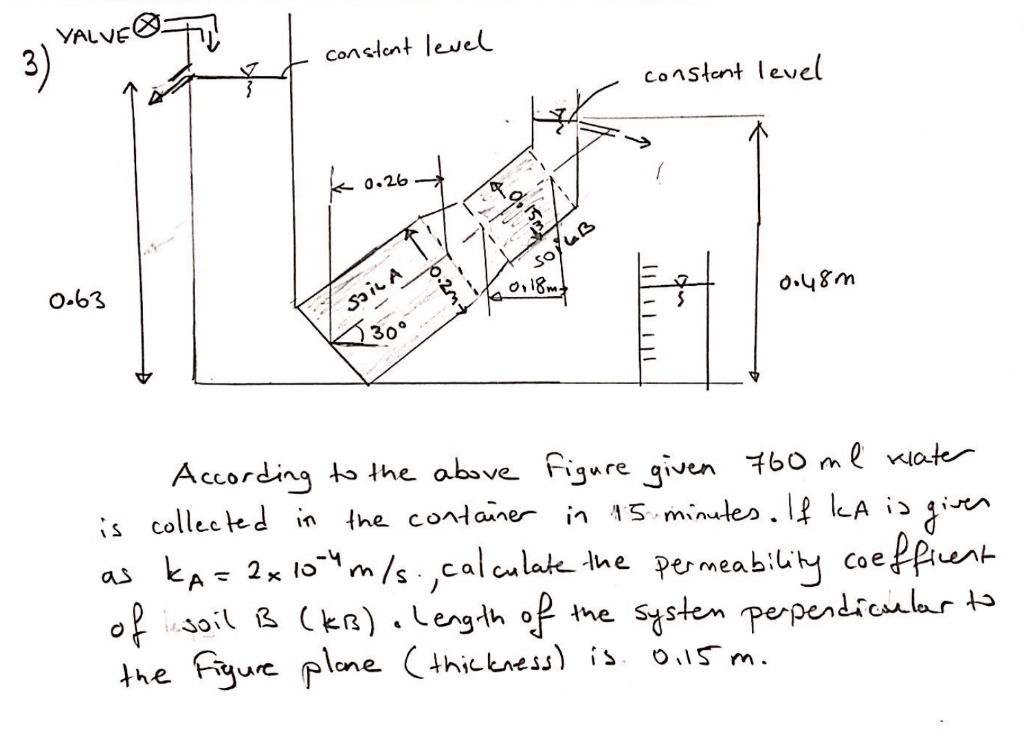 3)
VALVE
constant level
constant level
0.26
0.15m
SOIL B
SOIL A
0.2m
0,18m
30°
0.63
0.48m
According to the above Figure given 760 ml water
is collected in the container in 15 minutes. If kA is given
as kA = 2x10⁻⁴ m/s., calculate the permeability coefficient
of soil B (kB). Length of the system perpendicular to
the Figure plane (thickness) is 0.15 m.